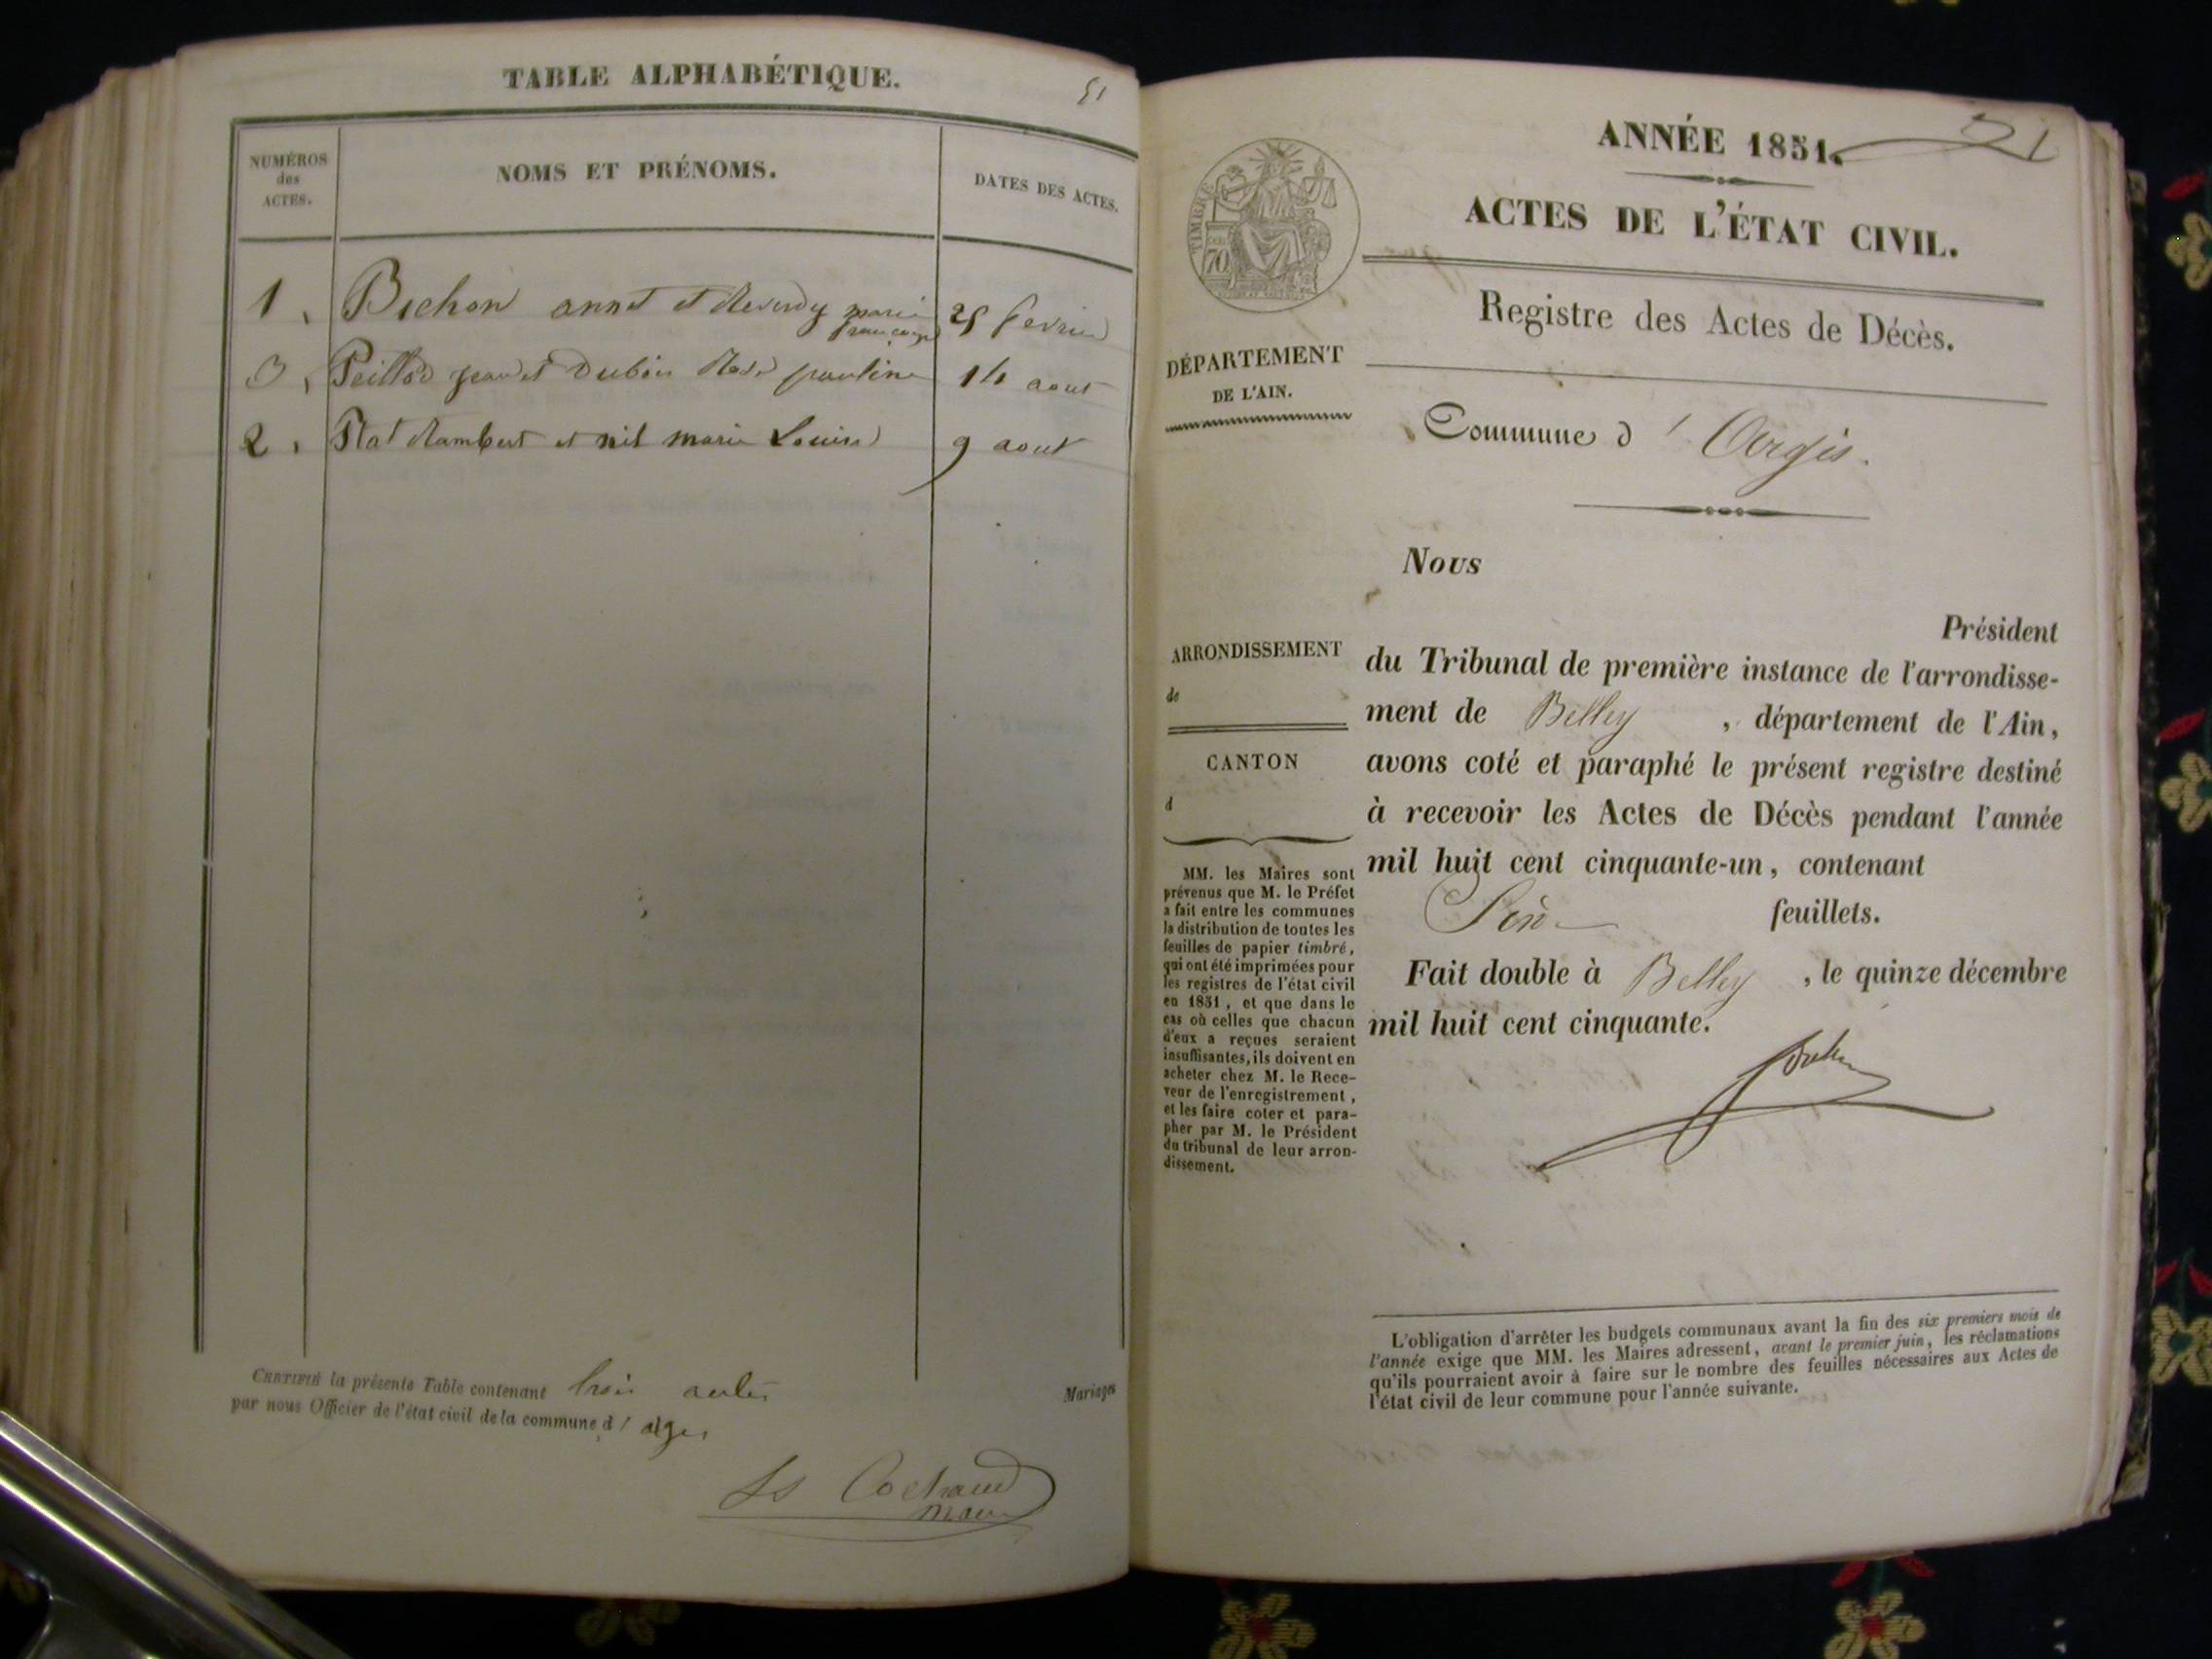 TABLE ALPHABÉTIQUE.
51
NUMÉROS
des
ACTES.
NOMS ET PRÉNOMS.
DATES DES ACTES.
1, Bichon annet et Reverdy marie 25 fevrier
françoise
3, Peillod jean et Dubois Rose pauline 14 aout
2, Plat Rambert et nil marie Louise 9 aout
CERTIFIÉ la présente Table contenant trois actes
par nous Officier de l'état civil de la commune d'
Mariages
maire
ANNÉE 1851.
ACTES DE L'ÉTAT CIVIL.
TIMBRE
70
Registre des Actes de Décès.
DÉPARTEMENT
DE L'AIN.
Commune d'Argis.
Nous
Président
ARRONDISSEMENT
de
CANTON
d
du Tribunal de première instance de l'arrondisse-
ment de Belley, département de l'Ain,
avons coté et paraphé le présent registre destiné
à recevoir les Actes de Décès pendant l'année
mil huit cent cinquante-un, contenant
feuillets.
Fait double à Belley, le quinze décembre
mil huit cent cinquante.
MM. les Maires sont
prévenus que M. le Préfet
a fait entre les communes
la distribution de toutes les
feuilles de papier timbré,
qui ont été imprimées pour
les registres de l'état civil
en 1851, et que dans le
cas où celles que chacun
d'eux a reçues seraient
insuffisantes, ils doivent en
acheter chez M. le Rece-
veur de l'enregistrement,
et les faire coter et para-
pher par M. le Président
du tribunal de leur arron-
dissement.
L'obligation d'arrêter les budgets communaux avant la fin des six premiers mois de
l'année exige que MM. les Maires adressent, avant le premier juin, les réclamations
qu'ils pourraient avoir à faire sur le nombre des feuilles nécessaires aux Actes de
l'état civil de leur commune pour l'année suivante.